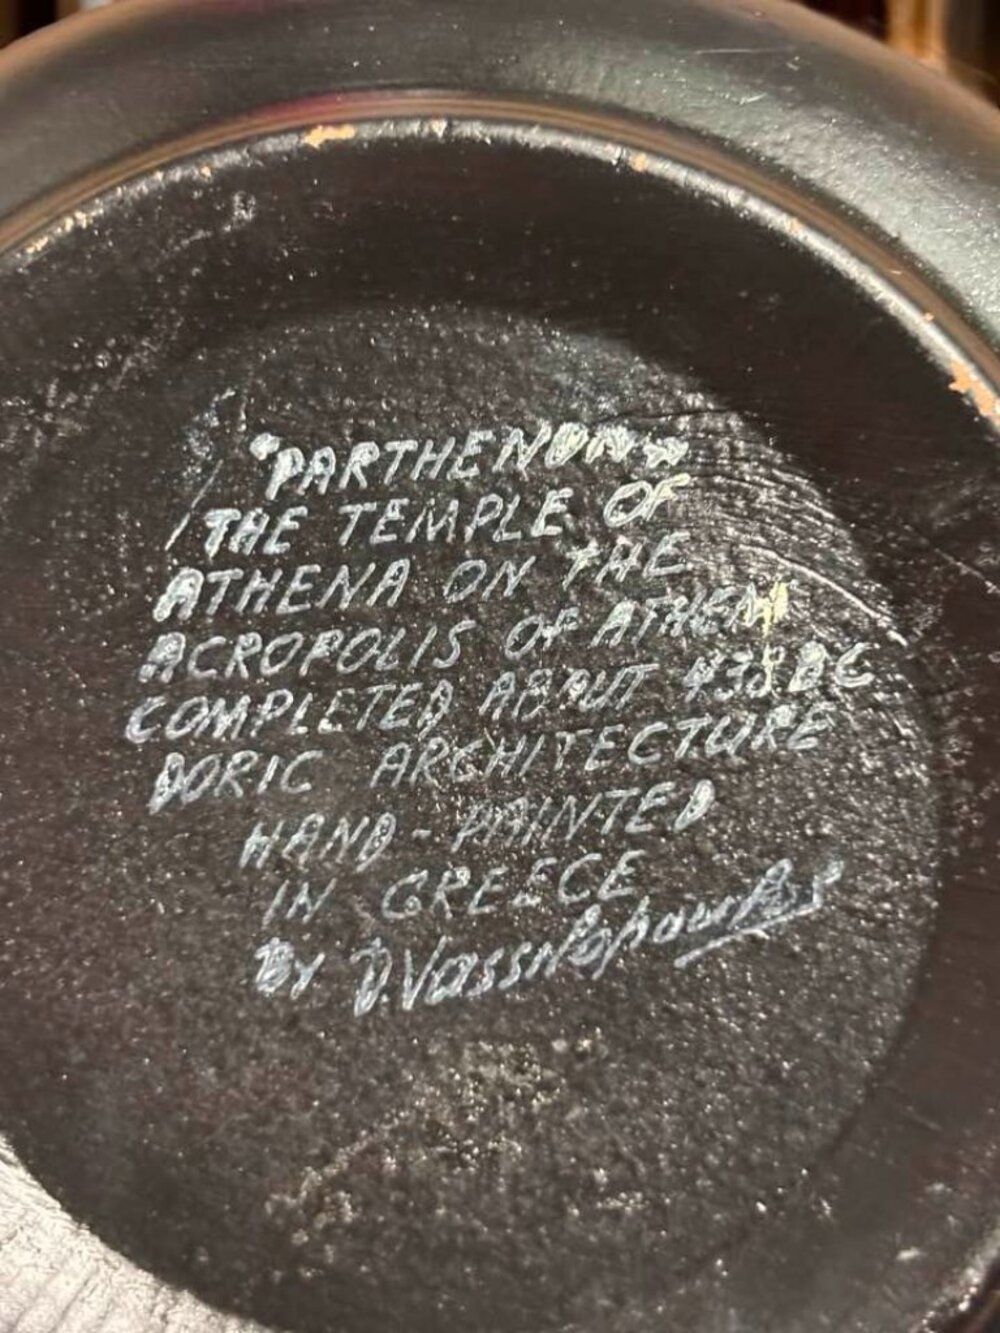 "PARTHENON"
THE TEMPLE OF
ATHENA ON THE
ACROPOLIS OF ATHENS
COMPLETED ABOUT 438 BC
DORIC ARCHITECTURE
HAND-PAINTED
IN GREECE
By D. Vassilopoulos